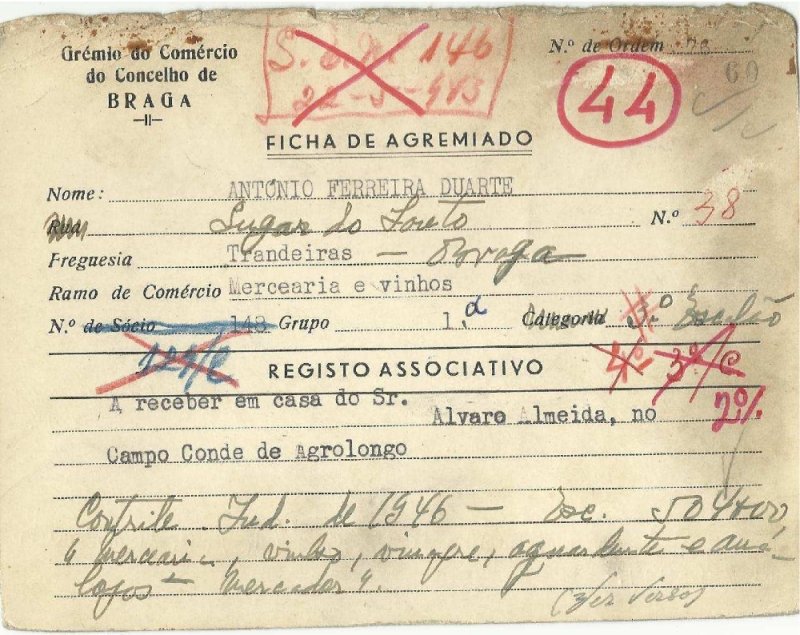 Grémio do Comércio
do Concelho de
BRAGA
146
N.º de Ordem
60
44
FICHA DE AGREMIADO
Nome: ANTÓNIO FERREIRA DUARTE
Rua Lugar do Souto N.º 38
Freguesia Trandeiras — Braga
Ramo de Comércio Mercearia e vinhos
N.º de Sócio 148 Grupo 1.ª Categoria 3.º Escalão
REGISTO ASSOCIATIVO 3º/C
2º/.
A receber em casa do Sr. Alvaro Almeida, no
Campo Conde de Agrolongo
Contrib. Ind. de 1946 — Esc. 504$00
"Mercearia, vinhos, vinagre, aguardente e aná-
logos — Mercador".
(Ver Verso)